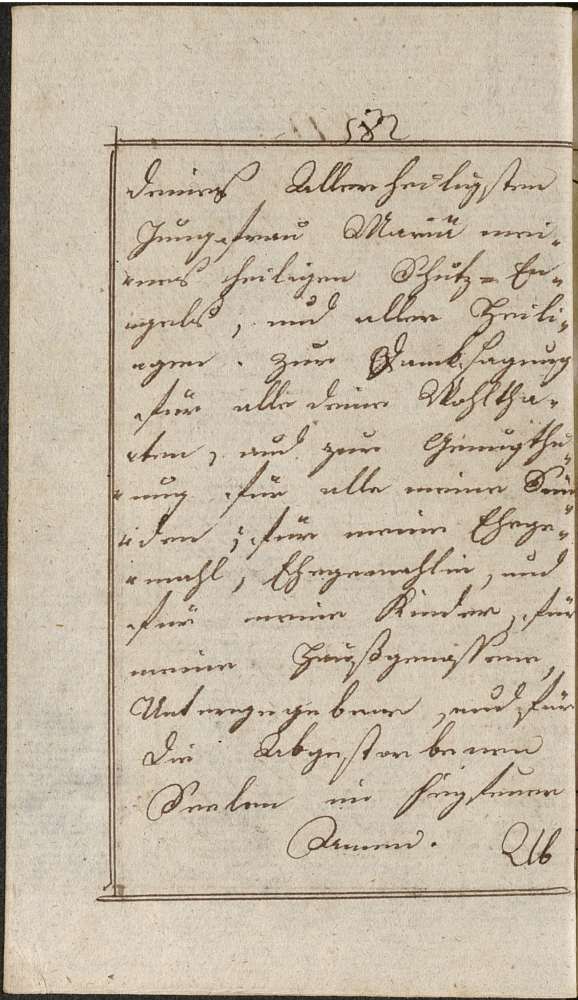 182
deiner Allerheiligsten
Jungfrau Mariä mei-
nes heiligen Schutz=En-
gels, und aller Heili-
gen. zur Danksagung
für alle deine Wohltha-
ten, und zur Genugthu-
ung für alle meine Sün
den, für meine Ehege-
mahl, Ehegemahlin, und
für meine Kinder, für
meine Haußgenossene,
Untergegebene, und für
die Abgestorbenen
Seelen im Fegfeuer
Amen. Ab